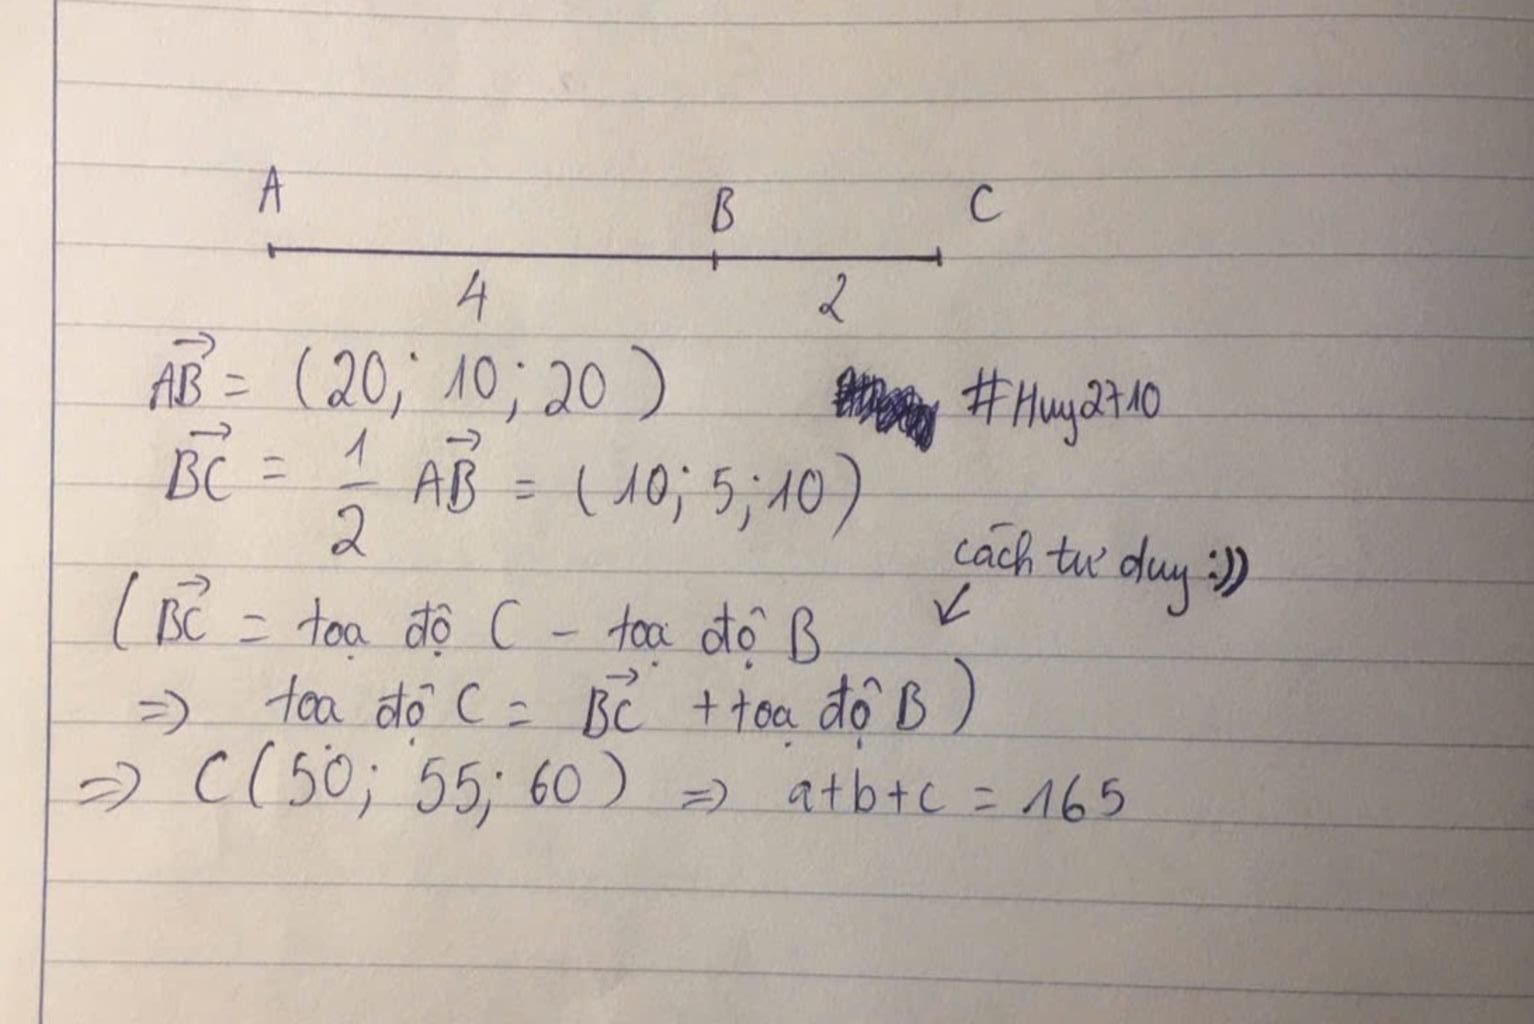 A B C
4 2
AB→ = (20; 10; 20)
#Huy2710
BC→ = 1/2 AB→ = (10; 5; 10)
cách tư duy :))
(BC→ = toạ độ C - toạ độ B
=> toạ độ C = BC→ + toạ độ B)
=> C(50; 55; 60) => a+b+c = 165